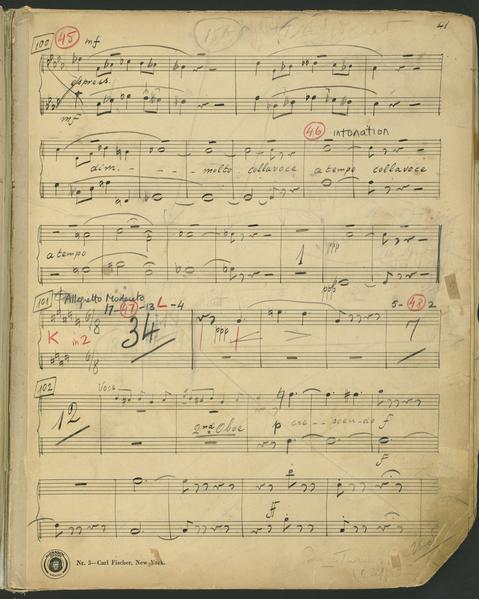 41
100 45 mf
espress.
mf
46 intonation
dim. - - - - molto collavoce a tempo collavoce
a tempo
1 ppp
ppp
101 Allegretto Moderato
17-47-13 L-4 5-48 2
K in 2 6/8 34 ppp 7
6/8
102 Voce
12 2nd Oboe p cre - - scen - do f
f
ff
Nr. 3—Carl Fischer, New York.